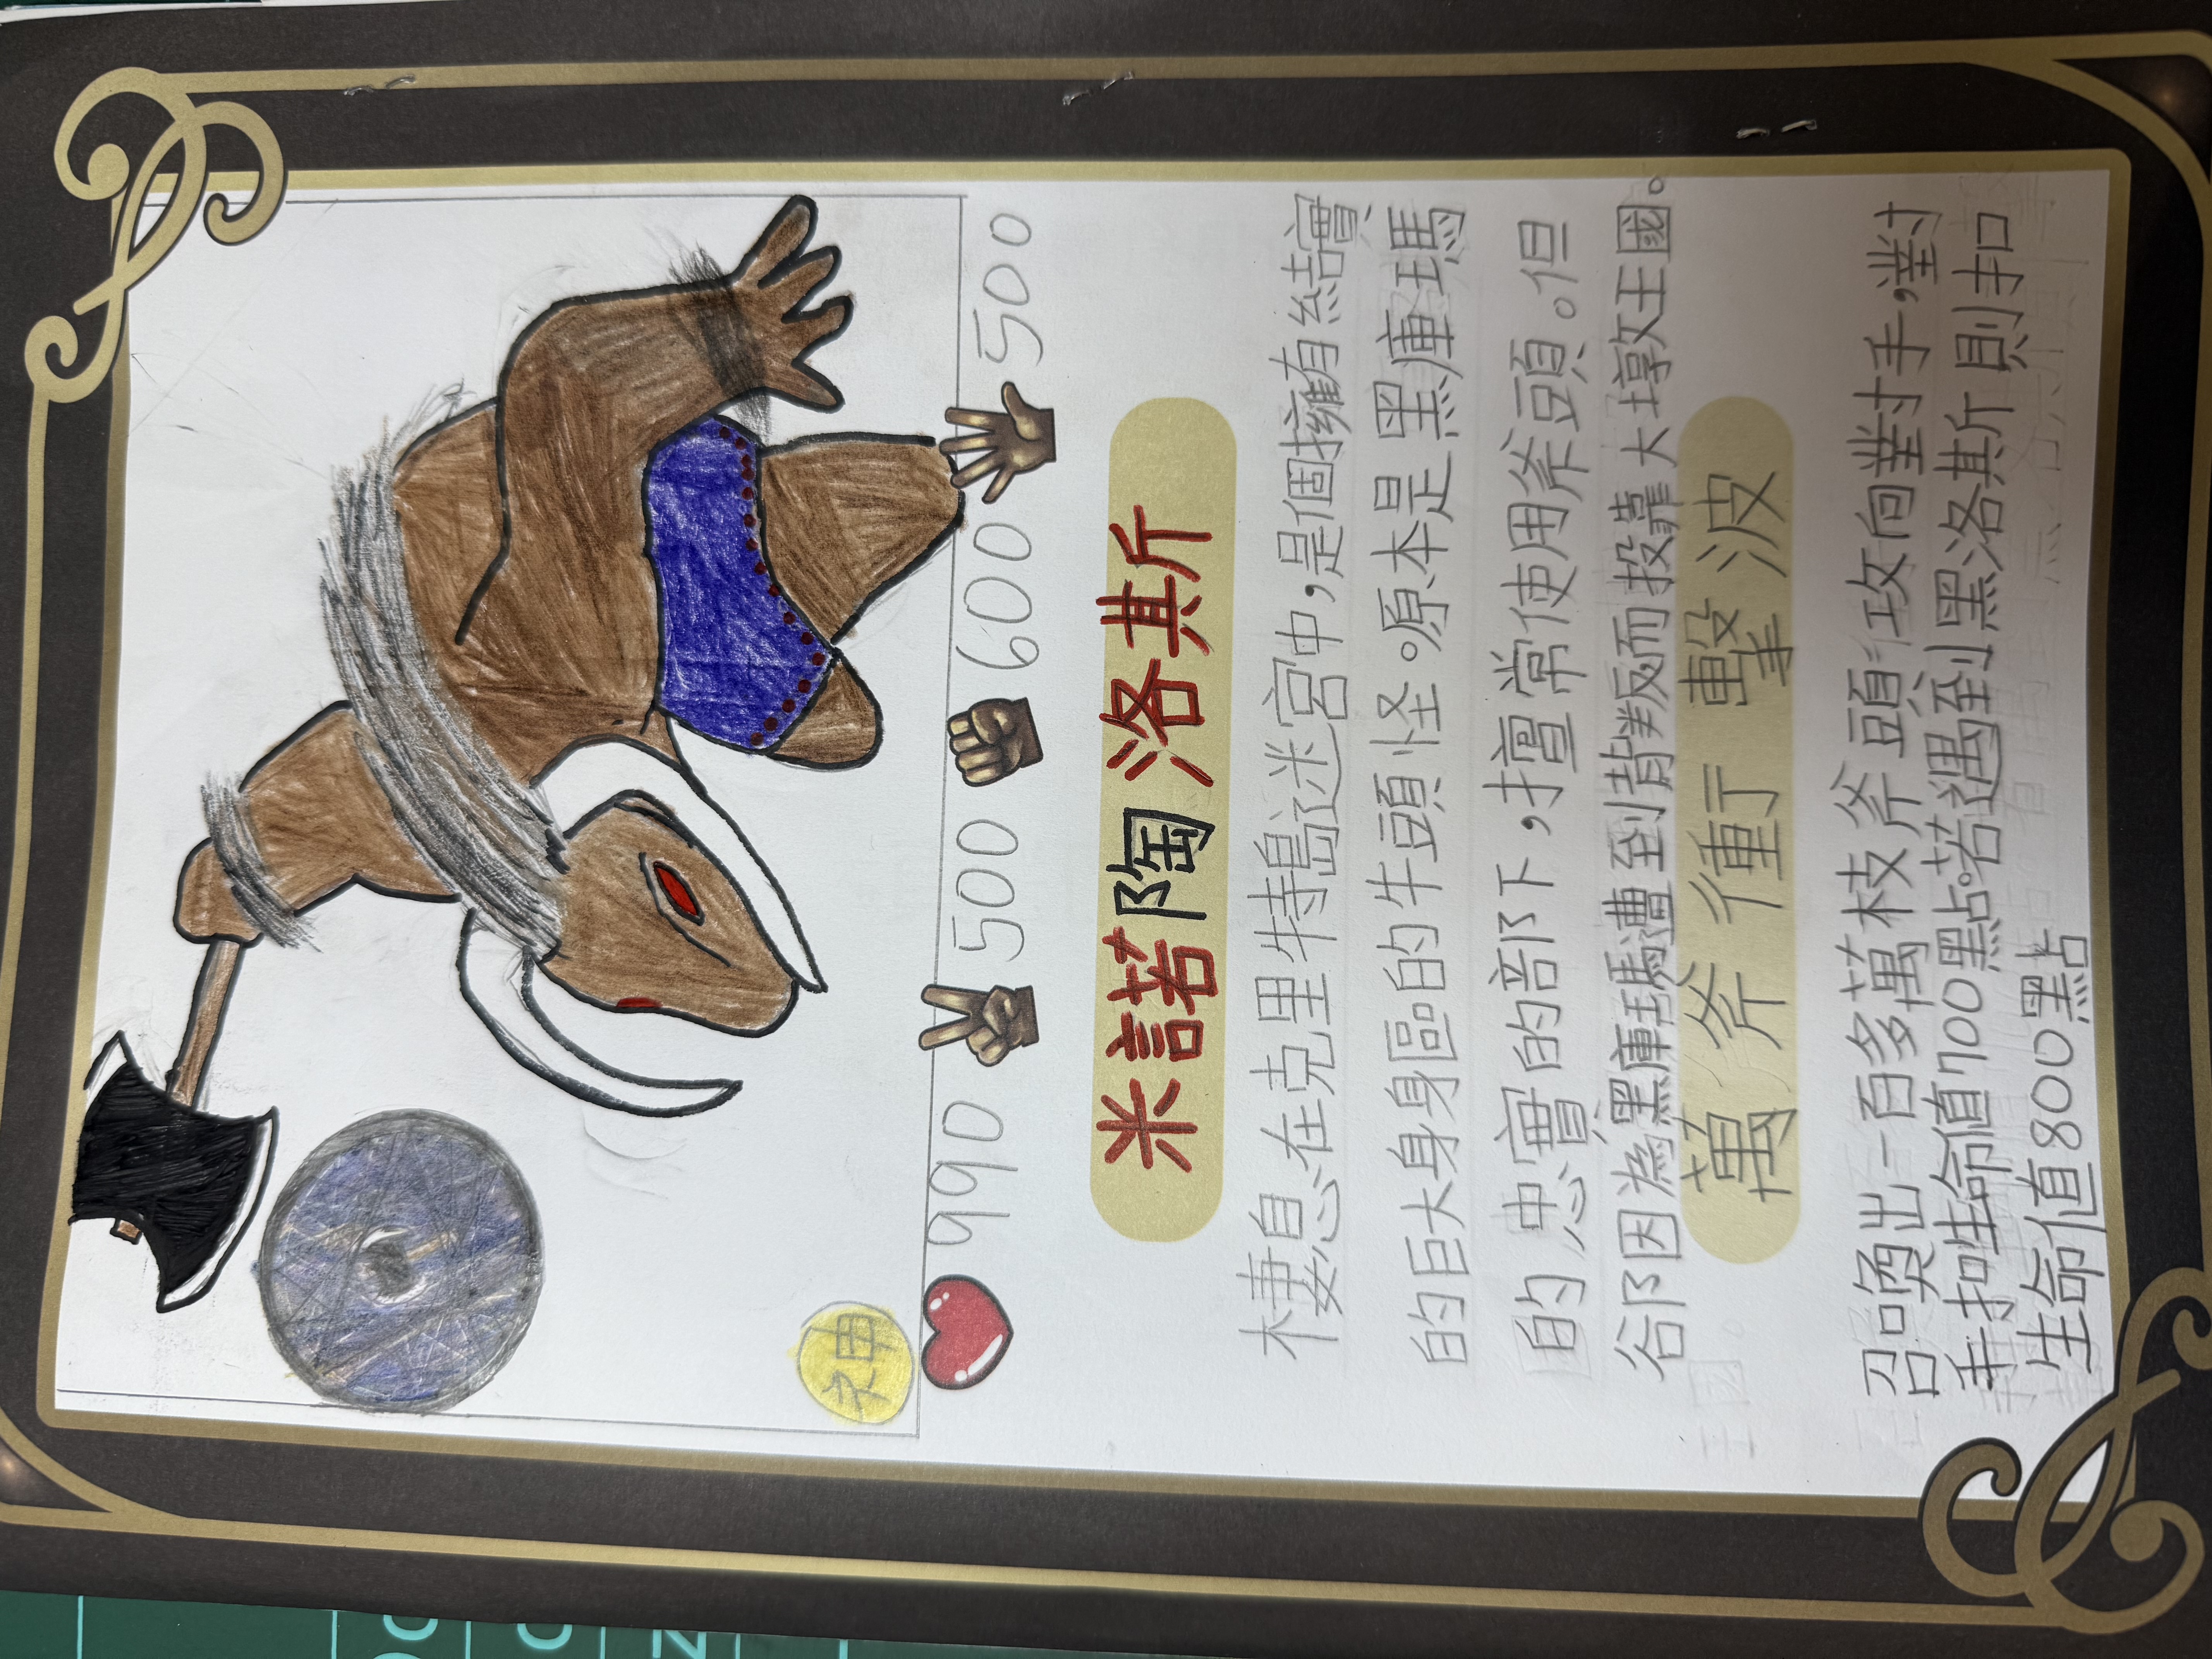 神
990 500 600 500
米諾陶洛斯
棲息在克里特島迷宮中，是個擁有結實
的巨大身軀的牛頭怪。原本是黑庫瑪
的忠實的部下，擅常使用斧頭。但
卻因為黑庫瑪遭到背叛而投靠大墩王國。
萬斧衝擊波
召喚出一百多萬枝斧頭攻向對手，對
手扣生命值700點。若遇到黑洛斯則扣
生命值800點